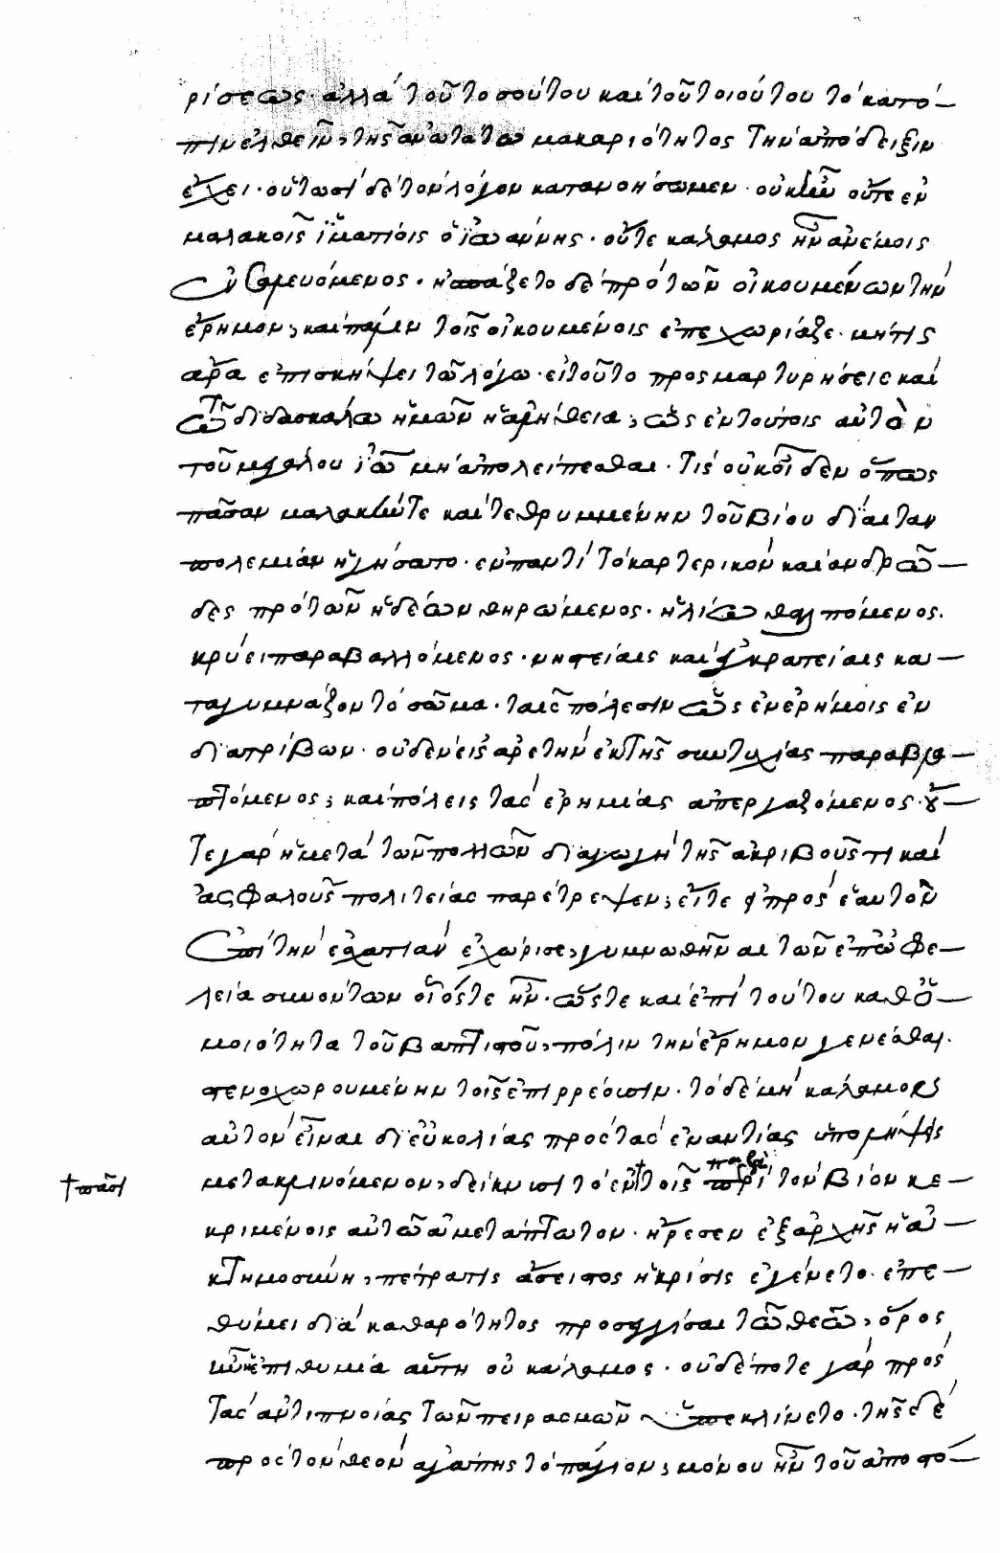 ρίσεως· ἀλλὰ τοῦ τοσούτου καὶ τοῦ τοιούτου τὸ κατό-
πιν ἐλθεῖν, τῆς ἀνωτάτω μακαριότητος τὴν ἀπόδειξιν
ἔχει· οὑτωσὶ δὲ τὸν λόγον κατανοήσωμεν· οὐκ ἦν οὔτε ἐν
μαλακοῖς ἱματίοις ὁ ἰωάννης· οὔτε κάλαμος ἦν ἀνέμοις
σαλευόμενος· ἠσπάζετο δὲ πρὸ τῶν οἰκουμένων τὴν
ἔρημον, καὶ πάλιν τοῖς οἰκουμένοις ἐπεχωρίαζε· μή τις
ἄρα ἐπισκήψει τῶ λόγω· εἰ τοῦτο προσμαρτυρήσεις καὶ
τῶ διδασκάλω ἡμῶν ἡ ἀλήθεια, ὡς ἐν τούτοις αὐτὸν
τοῦ μεγάλου ἰῶ μὴ ἀπολείπεσθαι· τίς οὐκ οἶδεν ὅπως
πᾶσαν μαλακήν τε καὶ τεθρυμμένην τοῦ βίου δίαιταν
πολεμίαν ἡγήσατο· ἐν παντὶ τὸ καρτερικὸν καὶ ἀνδρῶ-
δες πρὸ τῶν ἡδέων θηρώμενος· ἡλίω θαλπόμενος·
κρύει παραβαλλόμενος· νηστείαις καὶ ἐγκρατείαις κα-
ταγυμνάζον τὸ σῶμα· ταῖς πόλεσιν ὡς ἐν ἐρήμοις ἐν
διατρίβων· οὐδὲν εἰς ἀρετὴν ἐκ τῆς συντυχίας παραβλα-
πτόμενος, καὶ πόλεις τὰς ἐρημίας ἀπεργαζόμενος· οὔ-
τε γὰρ ἡ μετὰ τῶν πολλῶν διαγωγὴ τῆς ἀκριβοῦς τι καὶ
ἀσφαλοῦς πολιτείας παρέτρεψεν, εἴτε πρὸς ἑαυτὸν
ἐπὶ τὴν ἐσχατιὰν ἐχώρισε, γυμνωθῆναι τῶν ἐπ' ὠφε-
λεία συνόντων οἷός τε ἦν· ὥστε καὶ ἐπὶ τούτου καθ' ὁ-
μοιότητα τοῦ βαπτιστοῦ, πόλιν τὴν ἔρημον γενέσθαι·
στενοχωρουμένην τοῖς ἐπιρρέουσιν· τὸ δὲ μὴ κάλαμον
αὐτὸν εἶναι δι' εὐκολίας πρὸς τὰς ἐναντίας ὑπολήψεις
μετακλινόμενον, δείκνυσι τὸ ἐν † τοῖς παρὰ τὸν βίον κε-
† πᾶσι
κριμένοις αὐτῶ ἀμετάπτωτον· ἤρεσεν ἐξ ἀρχῆς ἡ ἀ-
κτημοσύνη, πέτρα τις ἄσειστος ἡ κρίσις ἐγένετο· ἐπε-
θύμει διὰ καθαρότητος προσεγγίσαι τῶ θεῶ, ὄρος
ἦν ἡ ἐπιθυμία αὕτη οὐ κάλαμος· οὐδέποτε γὰρ πρὸς
τὰς ἀντιπνοίας τῶν πειρασμῶν ὑπεκλίνετο· τῆς δὲ
πρὸς τὸν θεὸν ἀγάπης τὸ πάγιον, μόνου ἦν τοῦ ἀποστό-